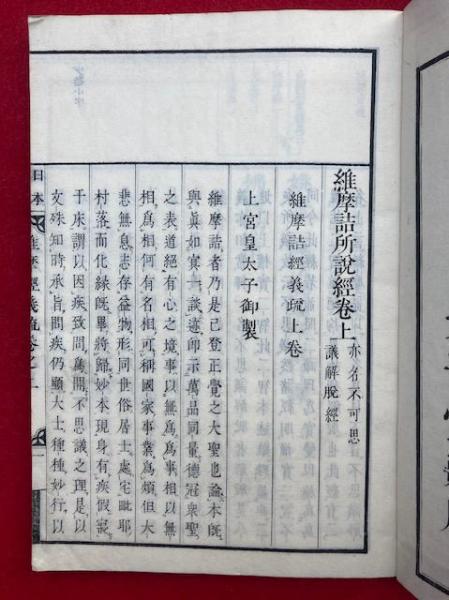 維摩詰所說經卷上
亦名不可思
議解脫經
維摩詰經義疏上卷
上宮皇太子御製
維摩詰者乃是已登正覺之大聖也論本旣
與眞如實一談迹卽示萬品同量德冠衆聖
之表道絕有心之境事以無爲爲事相以無
相爲相何有名相可稱國家事業爲煩但大
悲無息志存益物形同世俗居士處宅毗耶
村落而化緣旣畢將歸妙本現身有疾假寢
于床謂以因疾致問爲開不思議之理是以
文殊知時承旨問疾仍顯大士種種妙行以
日本